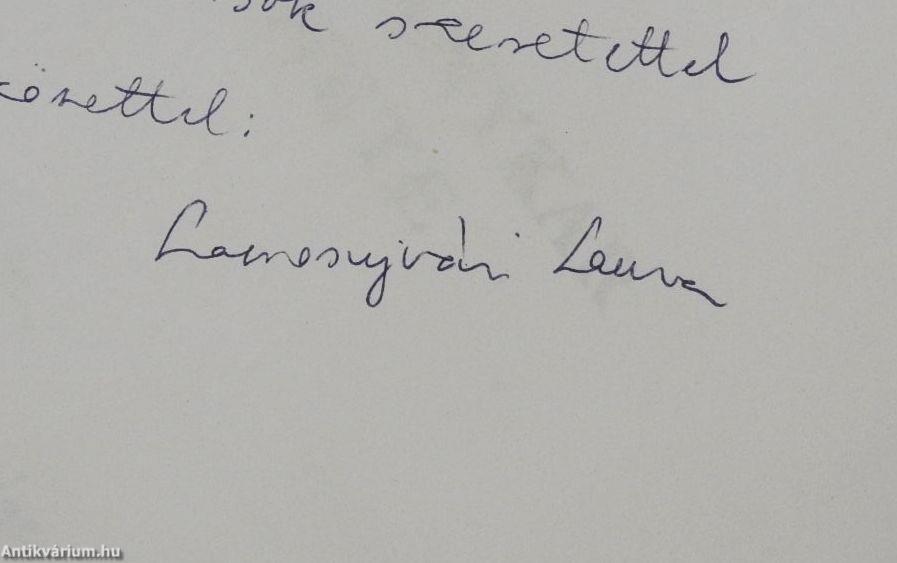 sok szeretettel
közettel:
Lamosujvári Laura
Antikvárium.hu